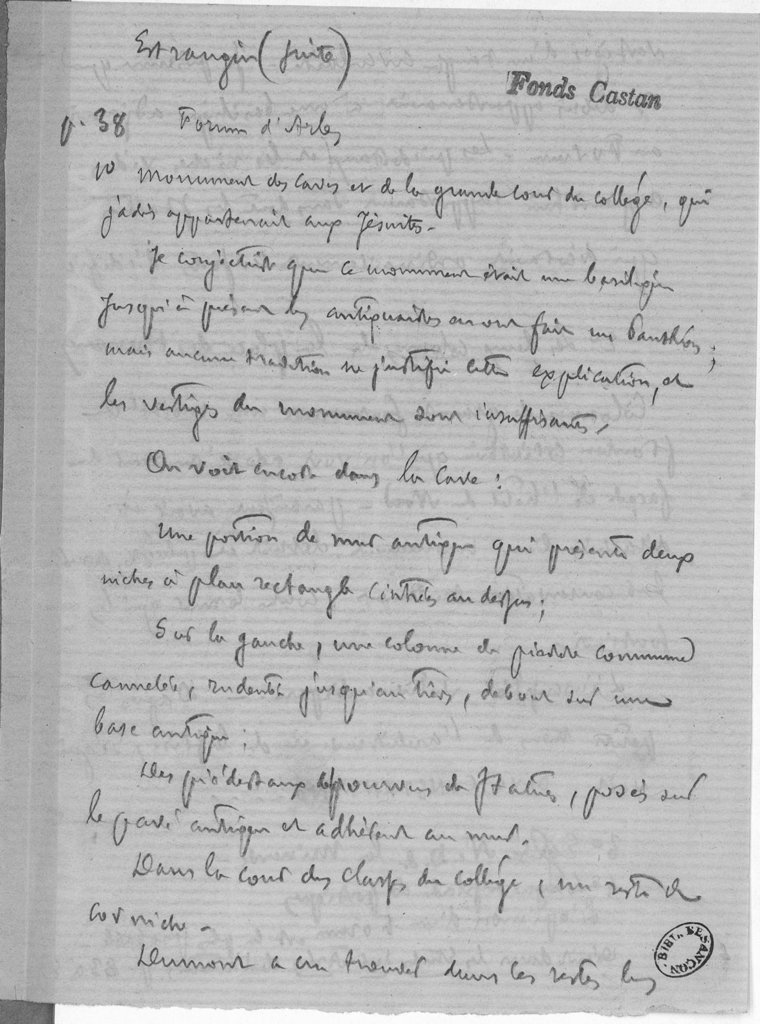 Estrangin (suite)
Fonds Castan
p. 38 Forum d'Arles
1° monument des caves et de la grande cour du collège, qui
jadis appartenait aux Jésuites.
Je conjecture que ce monument était une basilique
Jusqu'à présent les antiquaires en ont fait un Panthéon ;
mais aucune tradition ne justifie cette explication, et
les vestiges du monument sont insuffisants.
On voit encore dans la cave :
Une portion de mur antique qui présente deux
niches à plan rectangle cintrées au dessus ;
Sur la gauche, une colonne de pierre commune
cannelée, rudentée jusqu'au tiers, debout sur une
base antique ;
Des piédestaux dépourvus de statues, posés sur
le pavé antique et adhérent au mur.
Dans la cour des classes du collège, un reste de
corniche.
Dumont a cru trouver dans les restes les
BIBL. BESANÇON